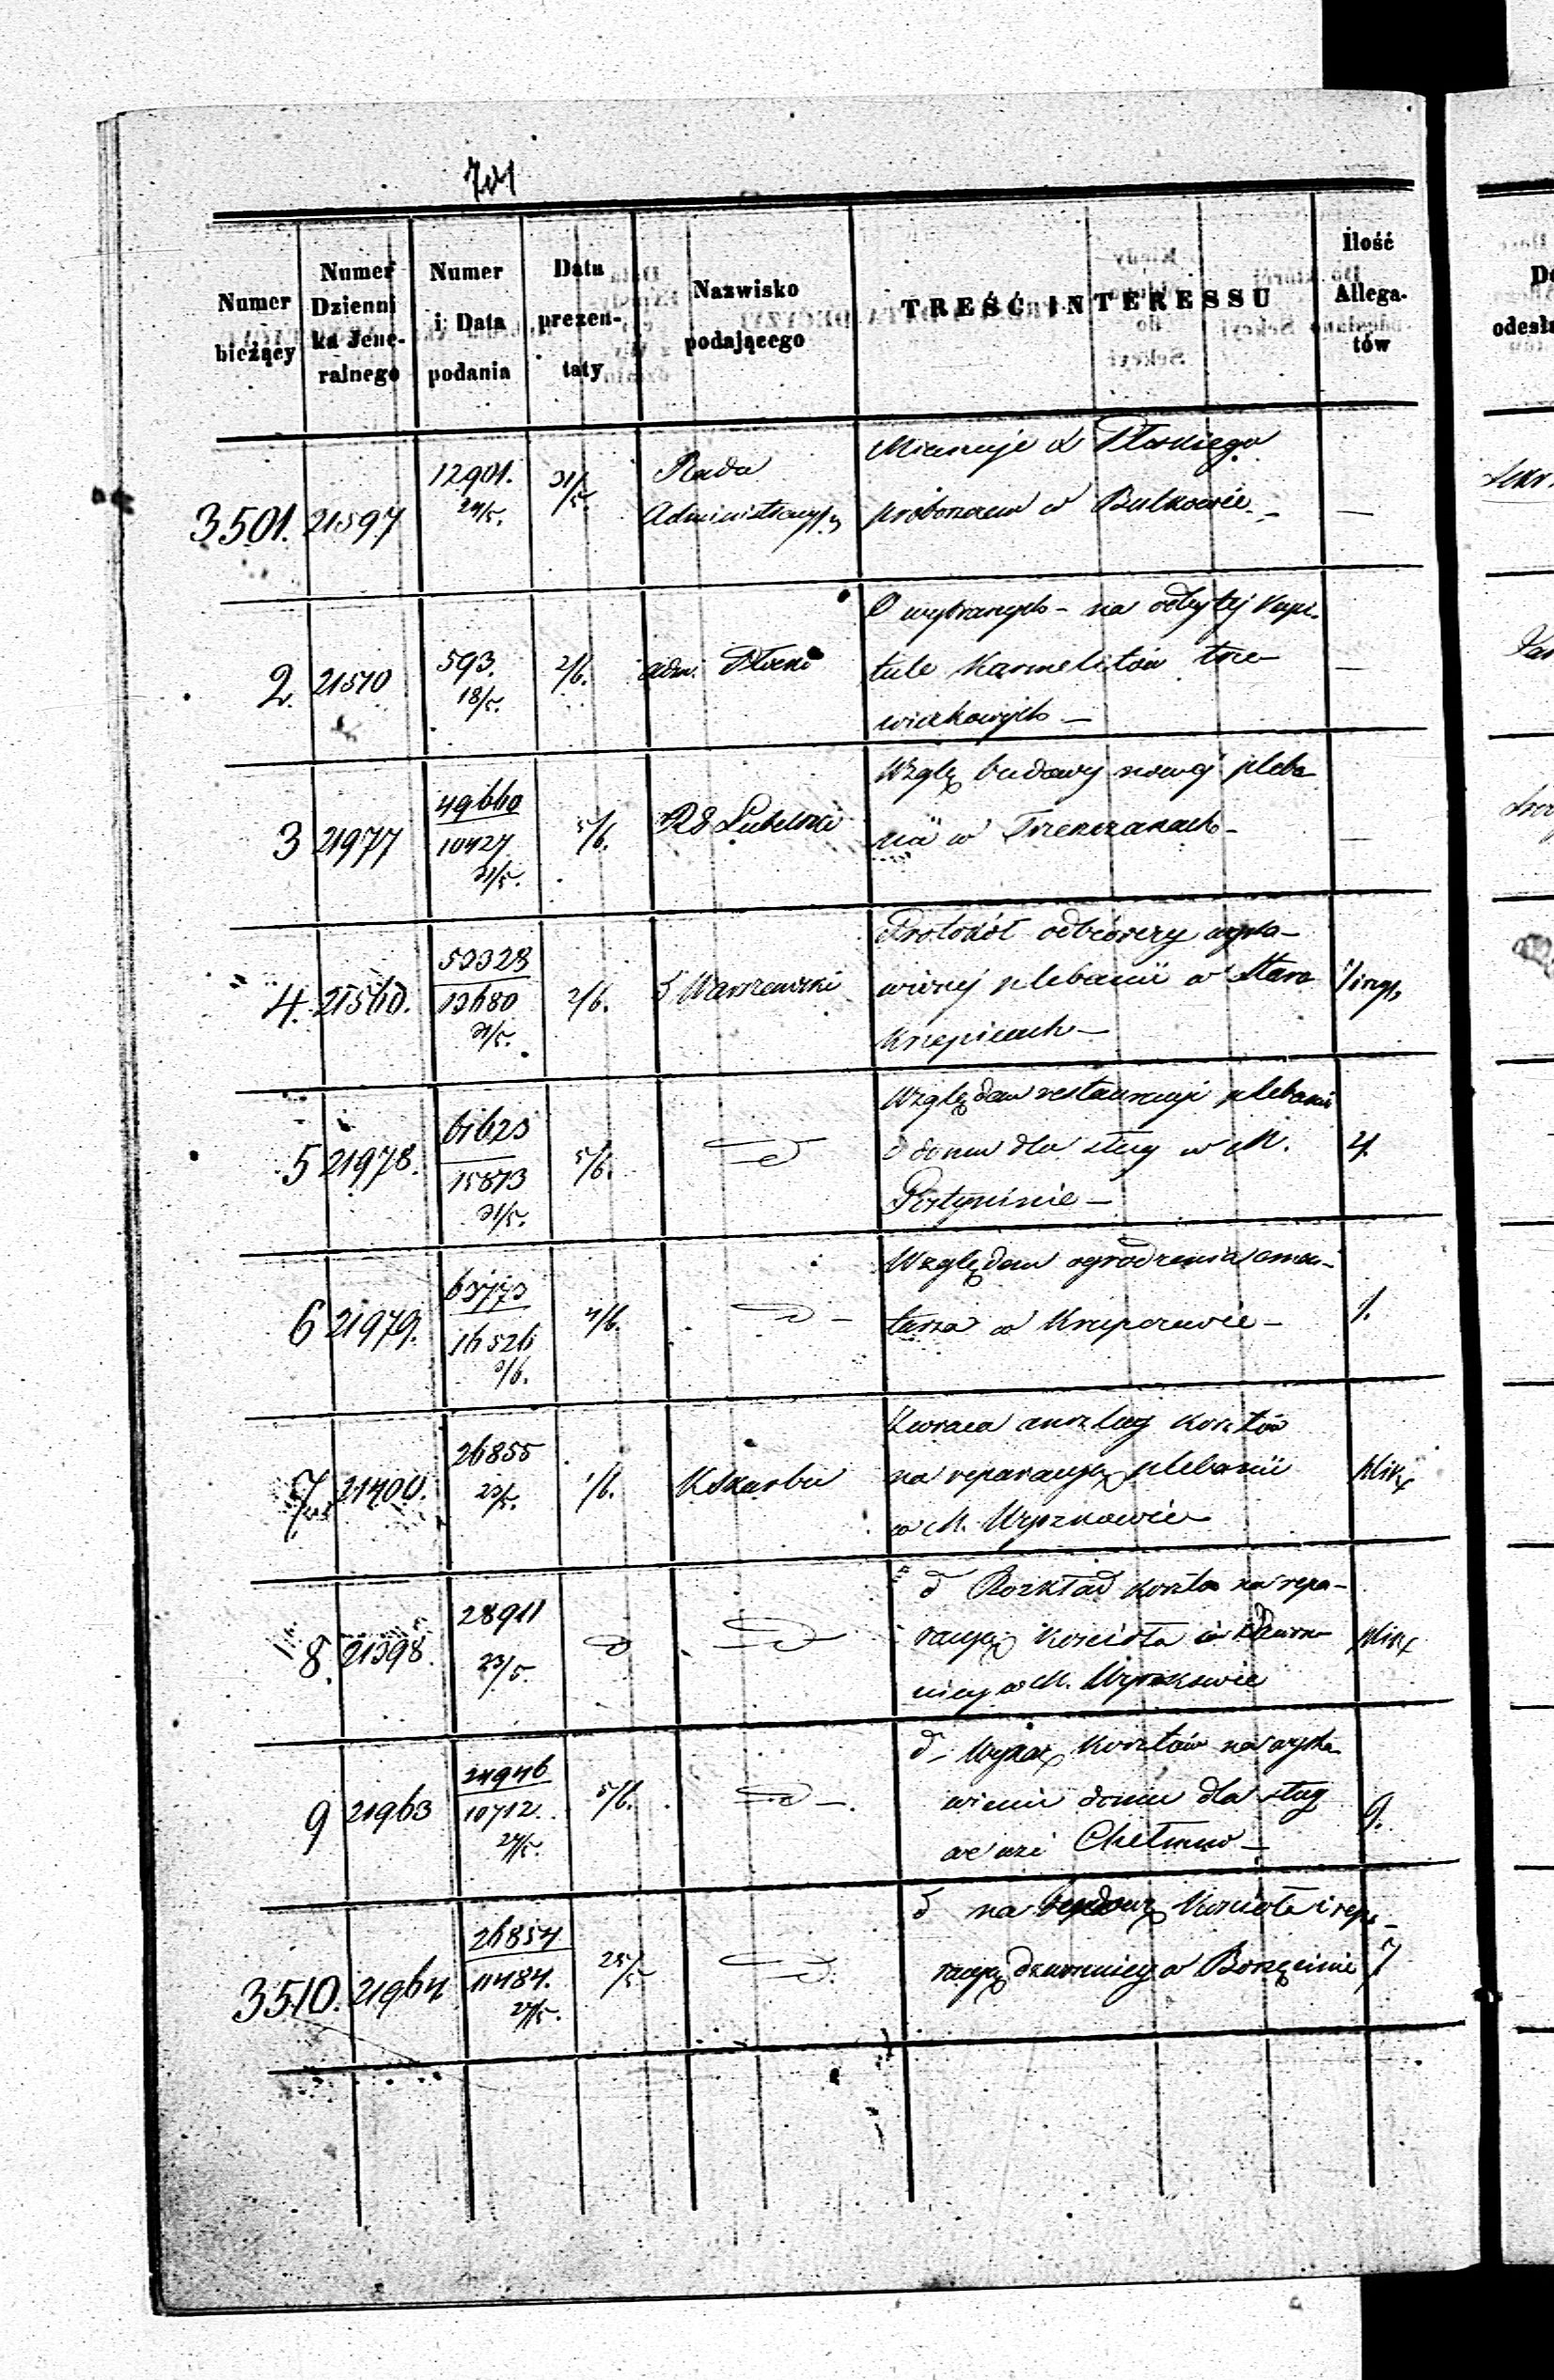 701
Numer bieżący
Numer Dziennika Jeneralnego
Numer i Data podania
Data prezentaty
Nazwisko podającego
TREŚĆ INTERESSU
Ilość Allegatów
3501. 21597 12901. 29/5. 31/5. Rada Administracyj. Mianuje X Płoskiego
proboszczem w Bulkowie. —
2. 21570 593. 18/5. 2/6. Adm. Płocki O wybranych na odbytej Kapi-
tule Karmelitów trze-
wiczkowych —
3 21977 49660 10427 31/5. 5/6. RG Lubelski Wzglę budowy nowej pleba
nii w Trzeszczanach —
4. 21560. 53328 13680 31/5. 2/6. d Warszawski Protokół odbiorczy wysta-
wionej plebanii w Staro
Krzepicach —
5 21978. 61623 15873 31/5. 5/6. Względem restauracyi plebanii
i domu dla sług w M.
4.
6 21979. 63773 16526 3/6. 4/6. Względem ogrodzenia cmen-
tarza w —
1.
7 21400. 26855 23/5. 1/6. K Skarbu Zwraca anszlag kosztów
na reparacyę plebanii
w M. Wyszkowie
plik
8. 21398. 28911 23/5. d Rozkład kosztów na repa-
racyę kościoła i dzwon
nicy w M. Wyszkowie
plik
9 21963 24946 10712. 24/5. 5/6. d — Wykaz kosztów na wysta
wienie domu dla sług
we wsi —
9.
3510. 21964 26854 11484. 24/5. 25/5 d na kościoła i repa-
racyę dzwonnicy w Borzęcinie 7